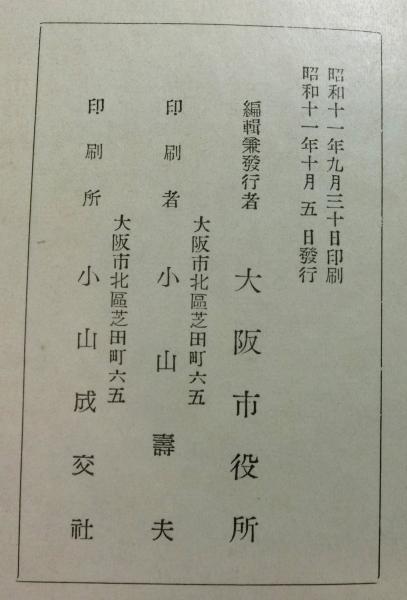 昭和十一年九月三十日印刷
昭和十一年十月五日發行
編輯兼發行者 大阪市役所
大阪市北區芝田町六五
印刷者 小山壽夫
大阪市北區芝田町六五
印刷所 小山成交社